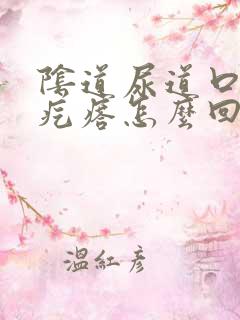 陰道尿道口
疙瘩怎麼回
溫紅彥